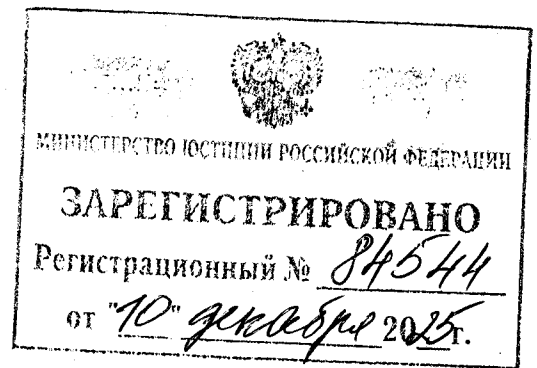 МИНИСТЕРСТВО ЮСТИЦИИ РОССИЙСКОЙ ФЕДЕРАЦИИ
ЗАРЕГИСТРИРОВАНО
Регистрационный № 84544
от "10" декабря 2025г.